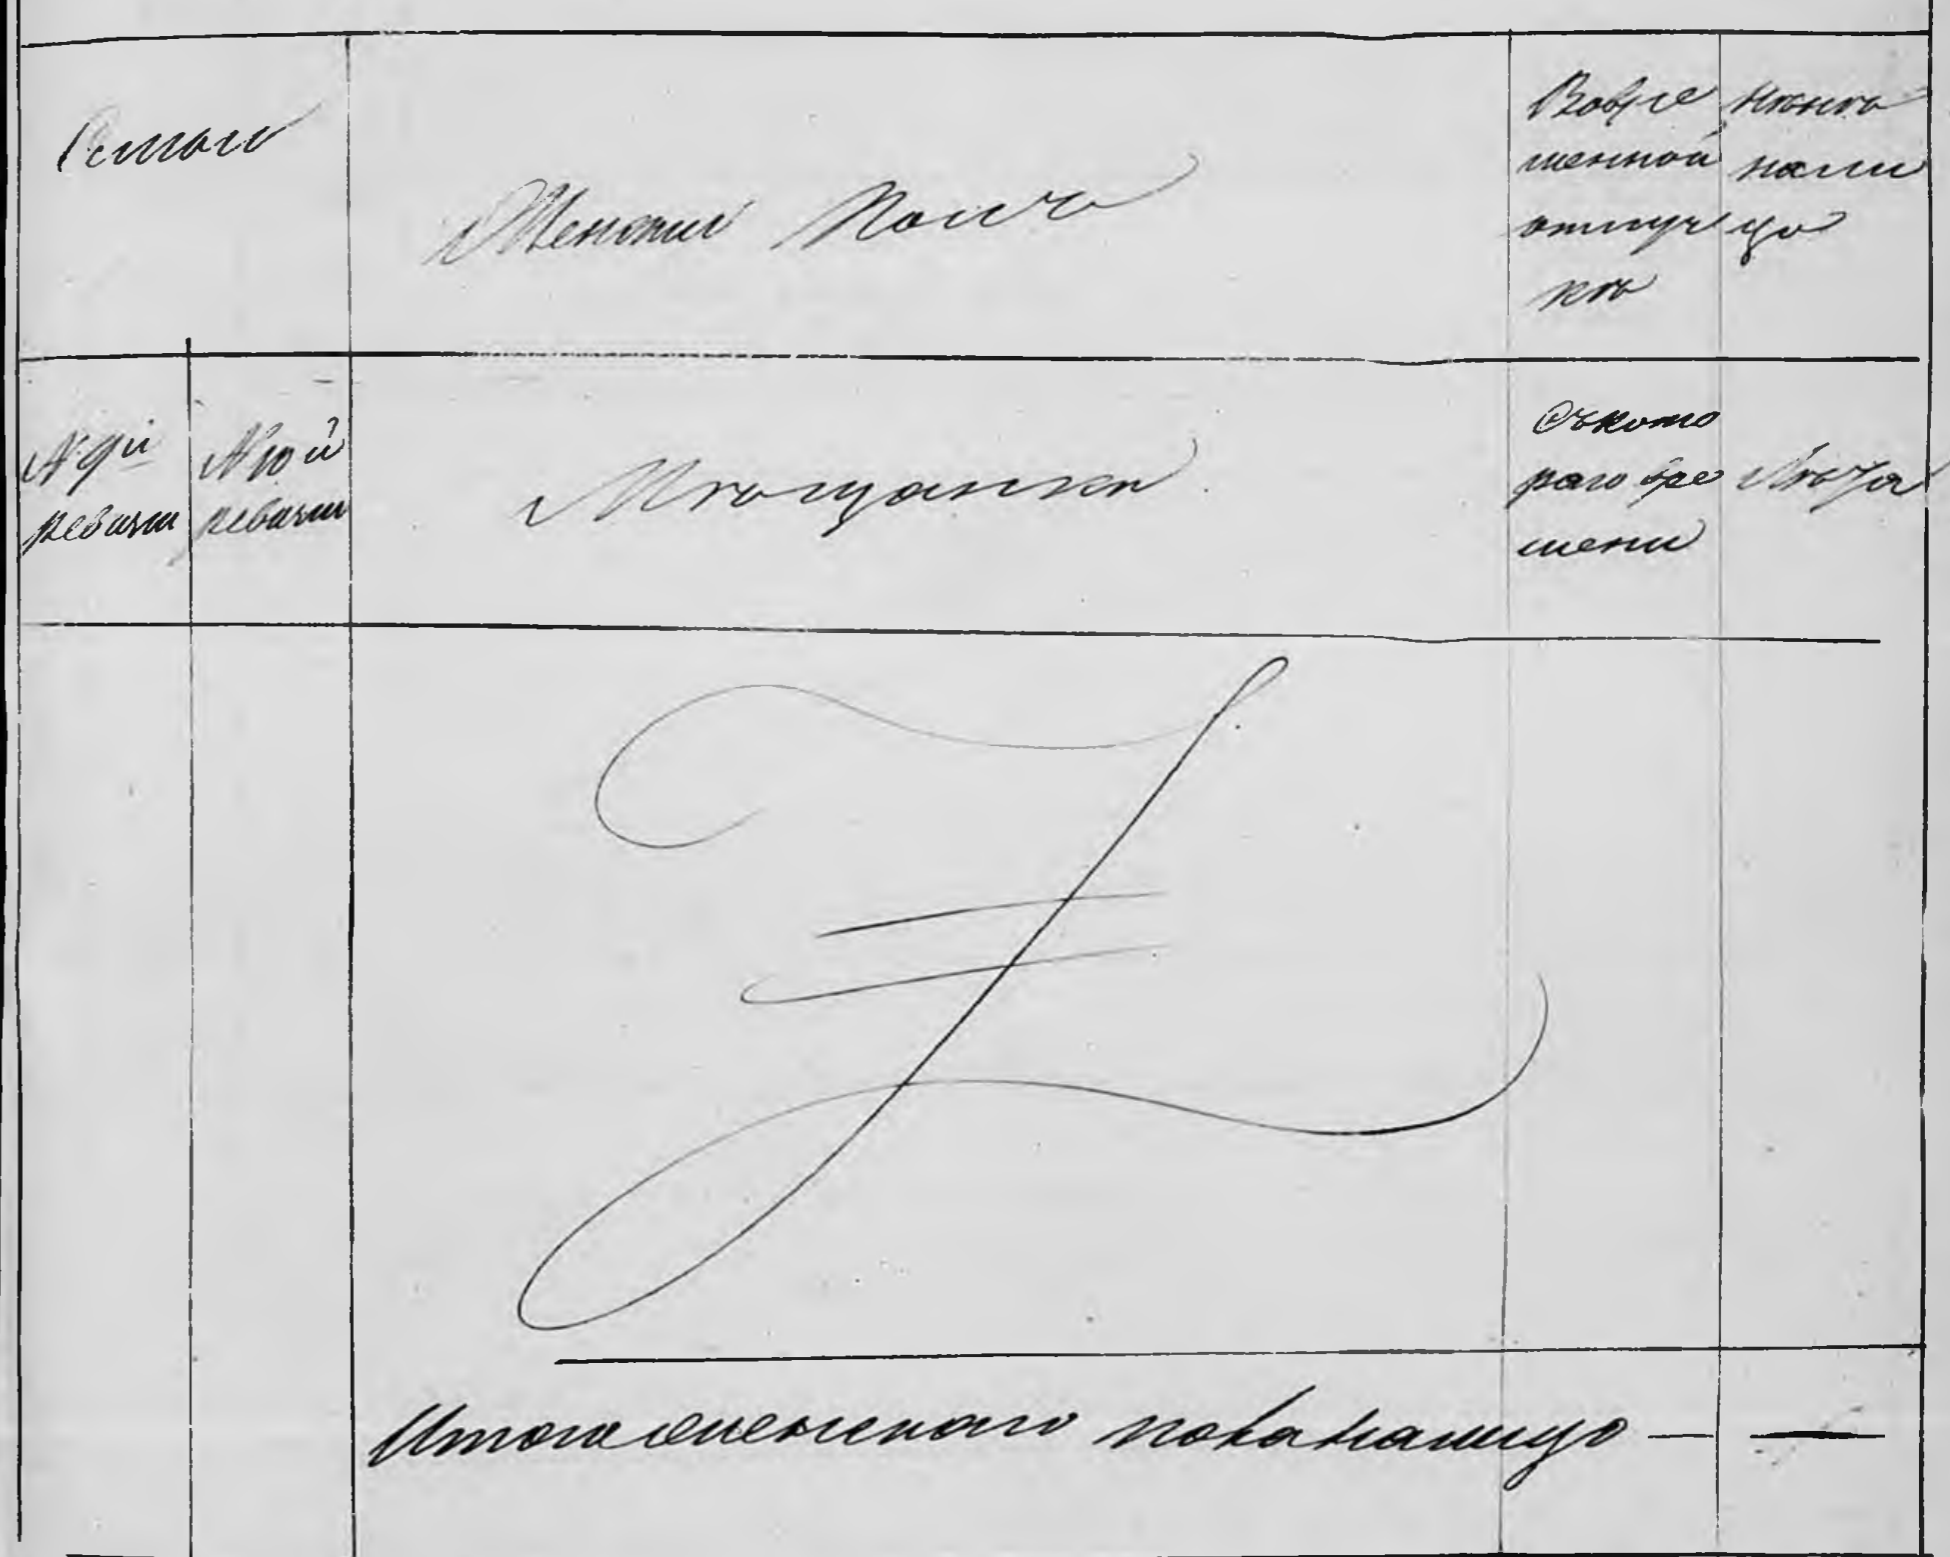 Семьи
Женскій Полъ
Вовре
менной
отлуч
кѣ
нынѣ
на ли
цо
№ 9й
ревизіи
№ 10й
ревизіи
Мѣщанки
Съ кото
раго вре
мени
Лѣта
Итого женскаго пола налицо — —